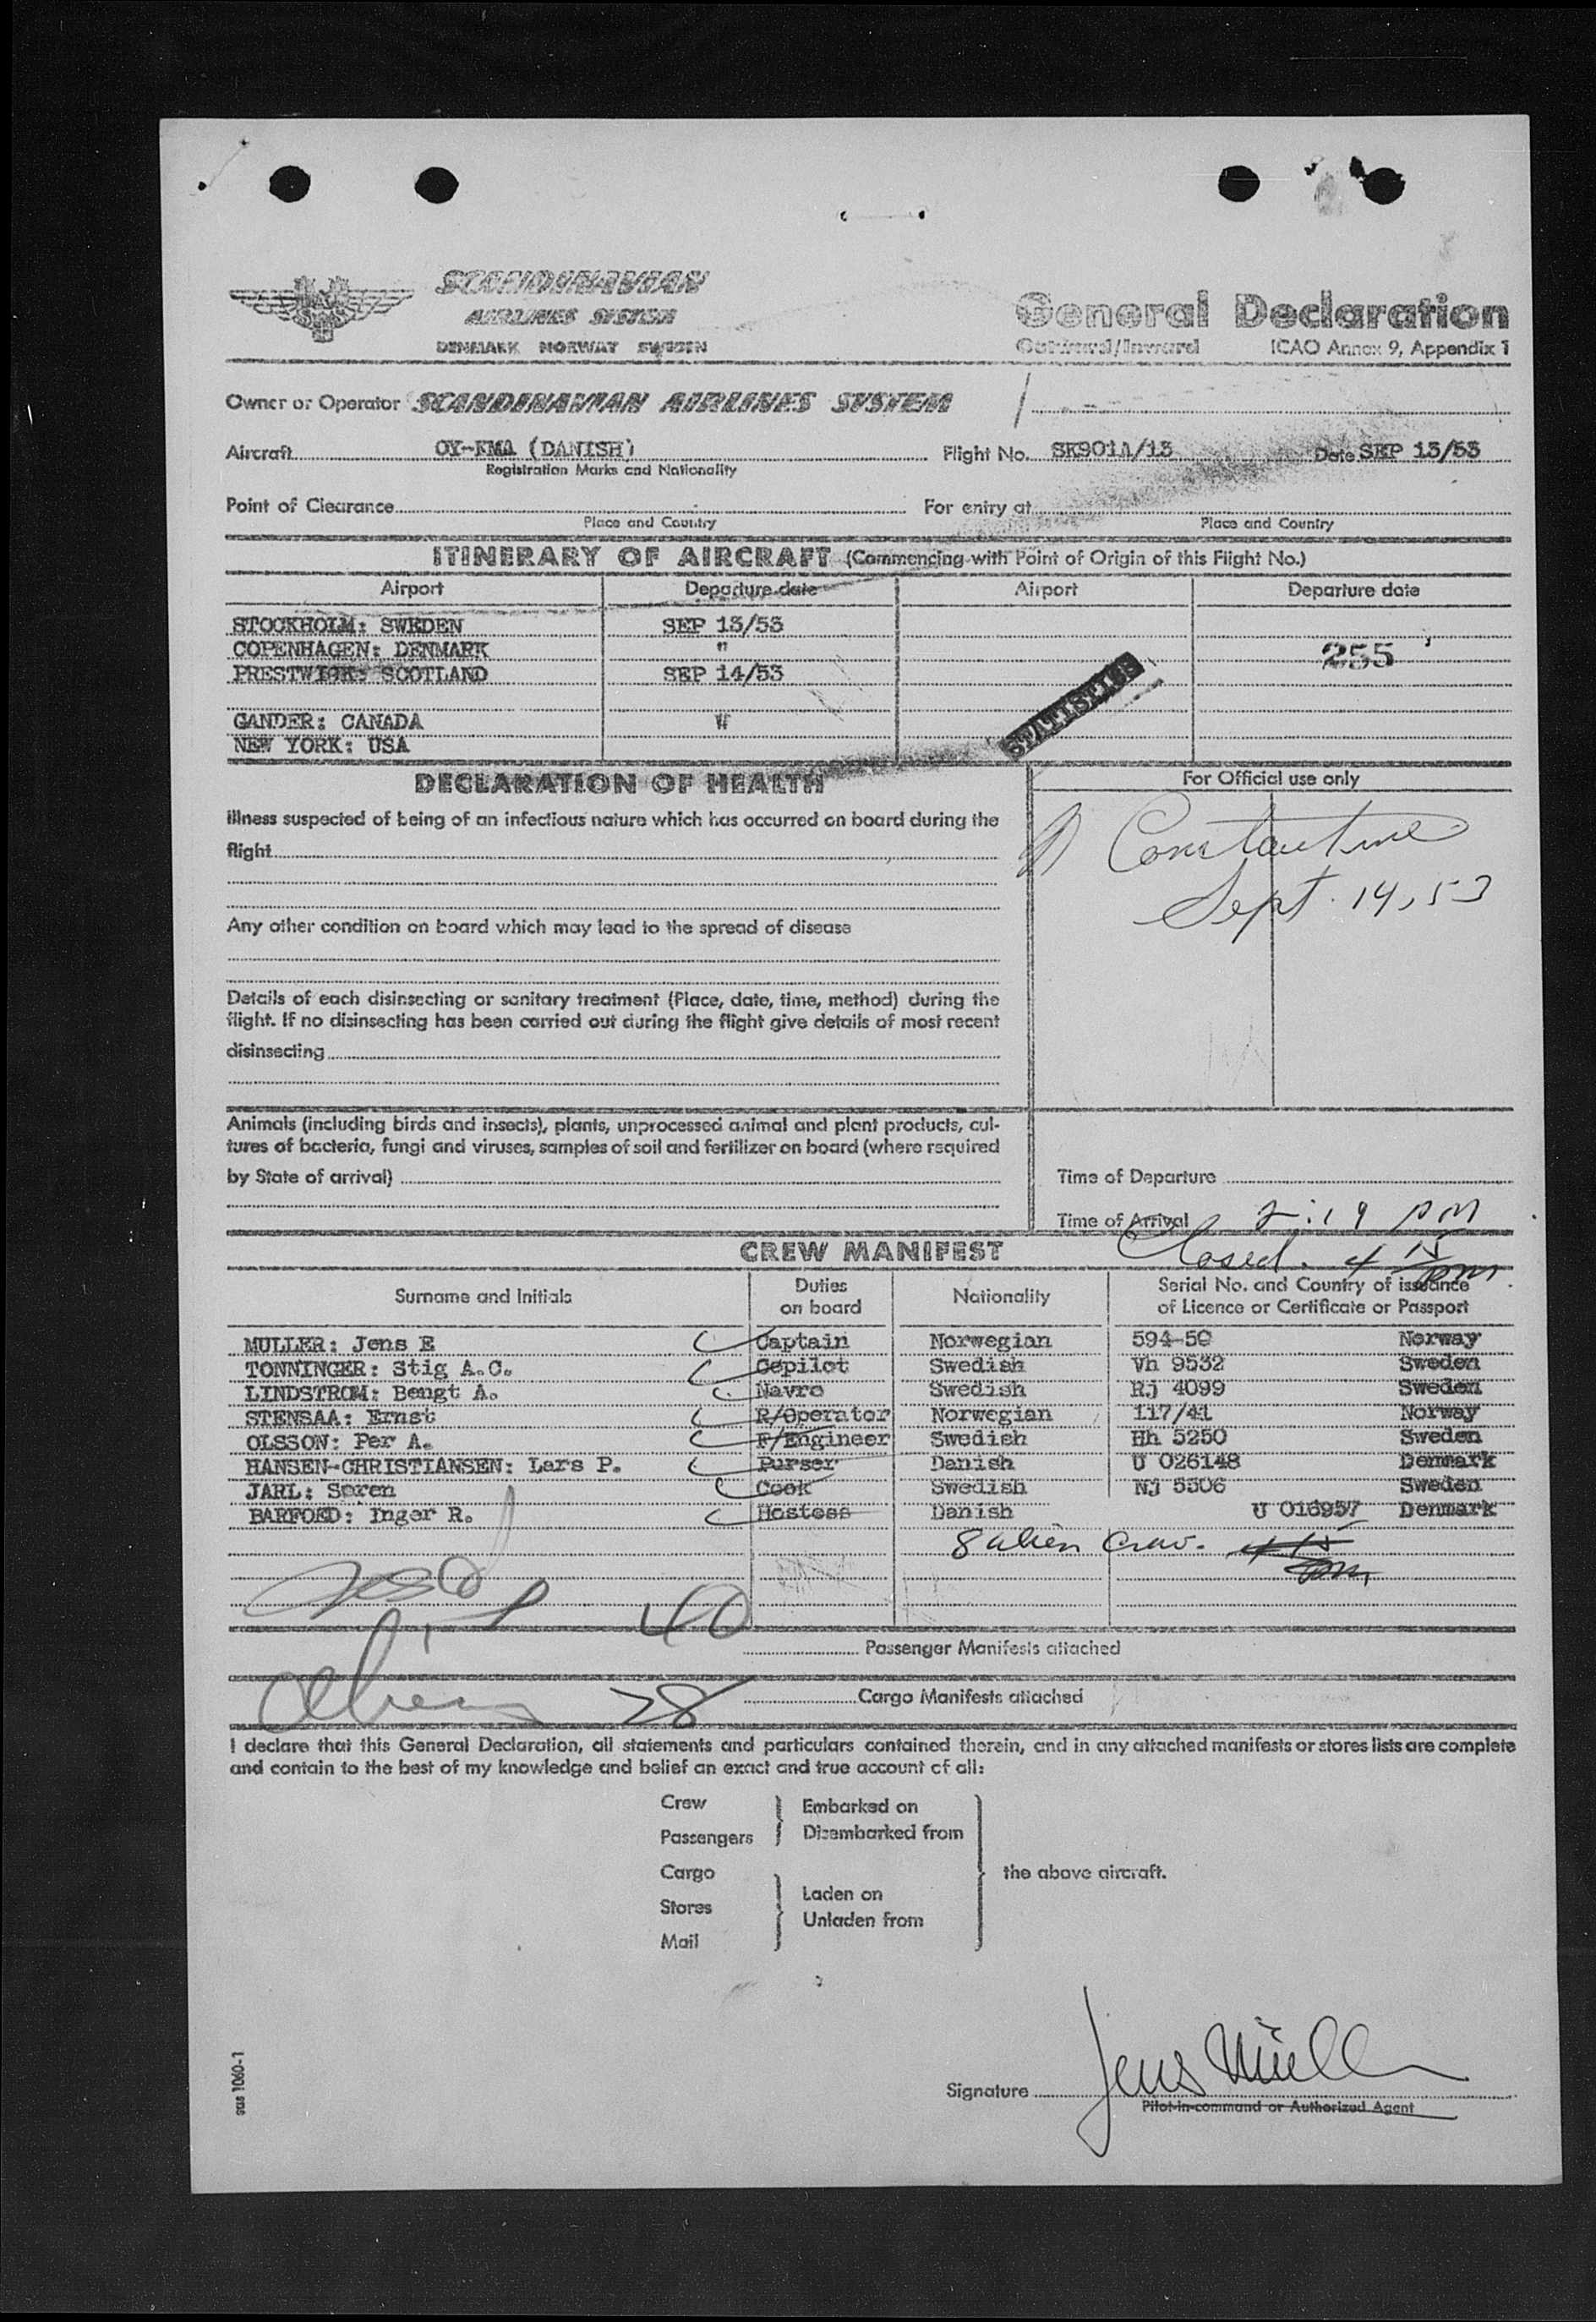 SCANDINAVIAN
AIRLINES SYSTEM
DENMARK NORWAY SWEDEN
General Declaration
Outward/Inward ICAO Annex 9, Appendix 1
Owner or Operator SCANDINAVIAN AIRLINES SYSTEM
Aircraft OY-KMA (DANISH) Flight No. SK901A/13 Date SEP 13/53
Registration Marks and Nationality
Point of Clearance For entry at
Place and Country Place and Country
ITINERARY OF AIRCRAFT (Commencing with Point of Origin of this Flight No.)
Airport Departure date Airport Departure date
STOCKHOLM: SWEDEN SEP 13/53
COPENHAGEN: DENMARK " 255
PRESTWICK: SCOTLAND SEP 14/53
STATISTICS
GANDER: CANADA "
NEW YORK: USA
DECLARATION OF HEALTH
For Official use only
Illness suspected of being of an infectious nature which has occurred on board during the
flight
Constantine
Sept. 14, 53
Any other condition on board which may lead to the spread of disease
Details of each disinsecting or sanitary treatment (Place, date, time, method) during the
flight. If no disinsecting has been carried out during the flight give details of most recent
disinsecting
Animals (including birds and insects), plants, unprocessed animal and plant products, cul-
tures of bacteria, fungi and viruses, samples of soil and fertilizer on board (where required
by State of arrival)
Time of Departure
Time of Arrival 2:19 PM
Closed. 4 15 pm
CREW MANIFEST
Surname and Initials Duties on board Nationality Serial No. and Country of issuance of Licence or Certificate or Passport
MULLER: Jens E Captain Norwegian 594-50 Norway
TONNINGER: Stig A.C. Copilot Swedish Vh 9532 Sweden
LINDSTROM: Bengt A. Navro Swedish Rj 4099 Sweden
STENSAA: Ernst R/Operator Norwegian 117/41 Norway
OLSSON: Per A. F/Engineer Swedish Hh 5250 Sweden
HANSEN-CHRISTIANSEN: Lars P. Purser Danish U 026148 Denmark
JARL: Søren Cook Swedish Nj 5506 Sweden
BARFOED: Inger R. Hostess Danish U 016957 Denmark
8 alien crew. 4 15 pm
40
Passenger Manifests attached
Aliens 28
Cargo Manifests attached
I declare that this General Declaration, all statements and particulars contained therein, and in any attached manifests or stores lists are complete
and contain to the best of my knowledge and belief an exact and true account of all:
Crew
Passengers
Embarked on
Disembarked from
Cargo
Stores
Mail
Laden on
Unladen from
the above aircraft.
sas 1060-1
Signature Jens Müller
Pilot-in-command or Authorized Agent